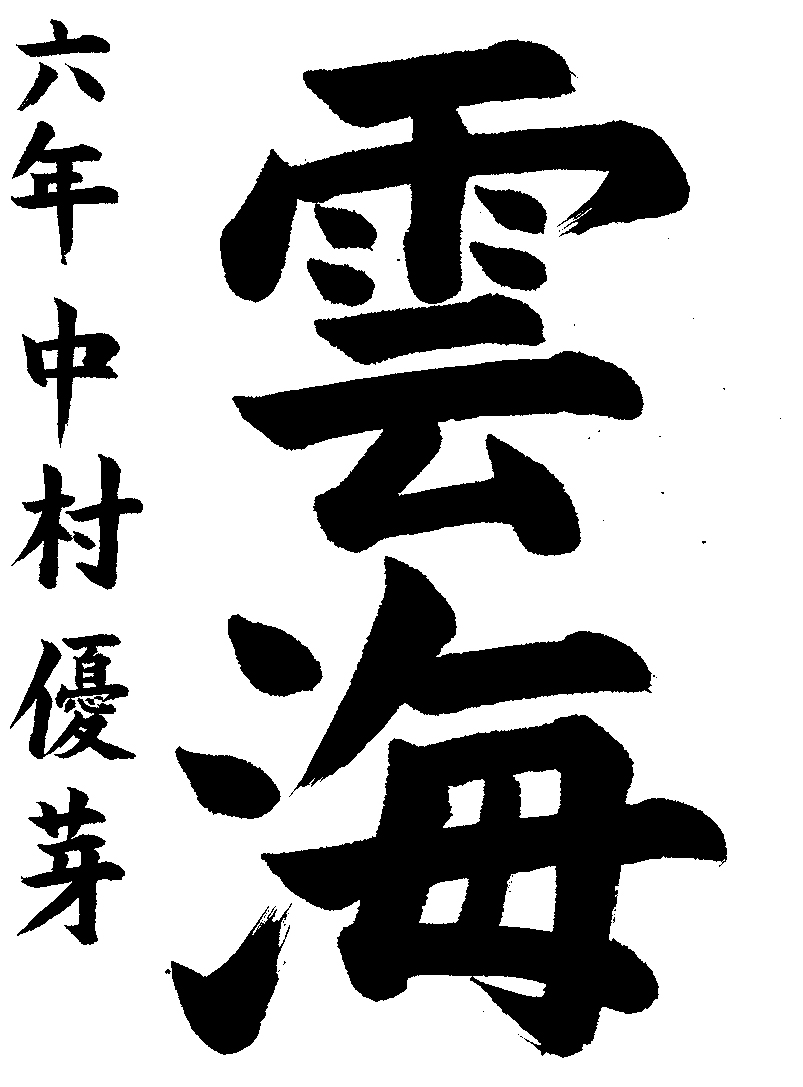 雲海
六年 中村 優芽